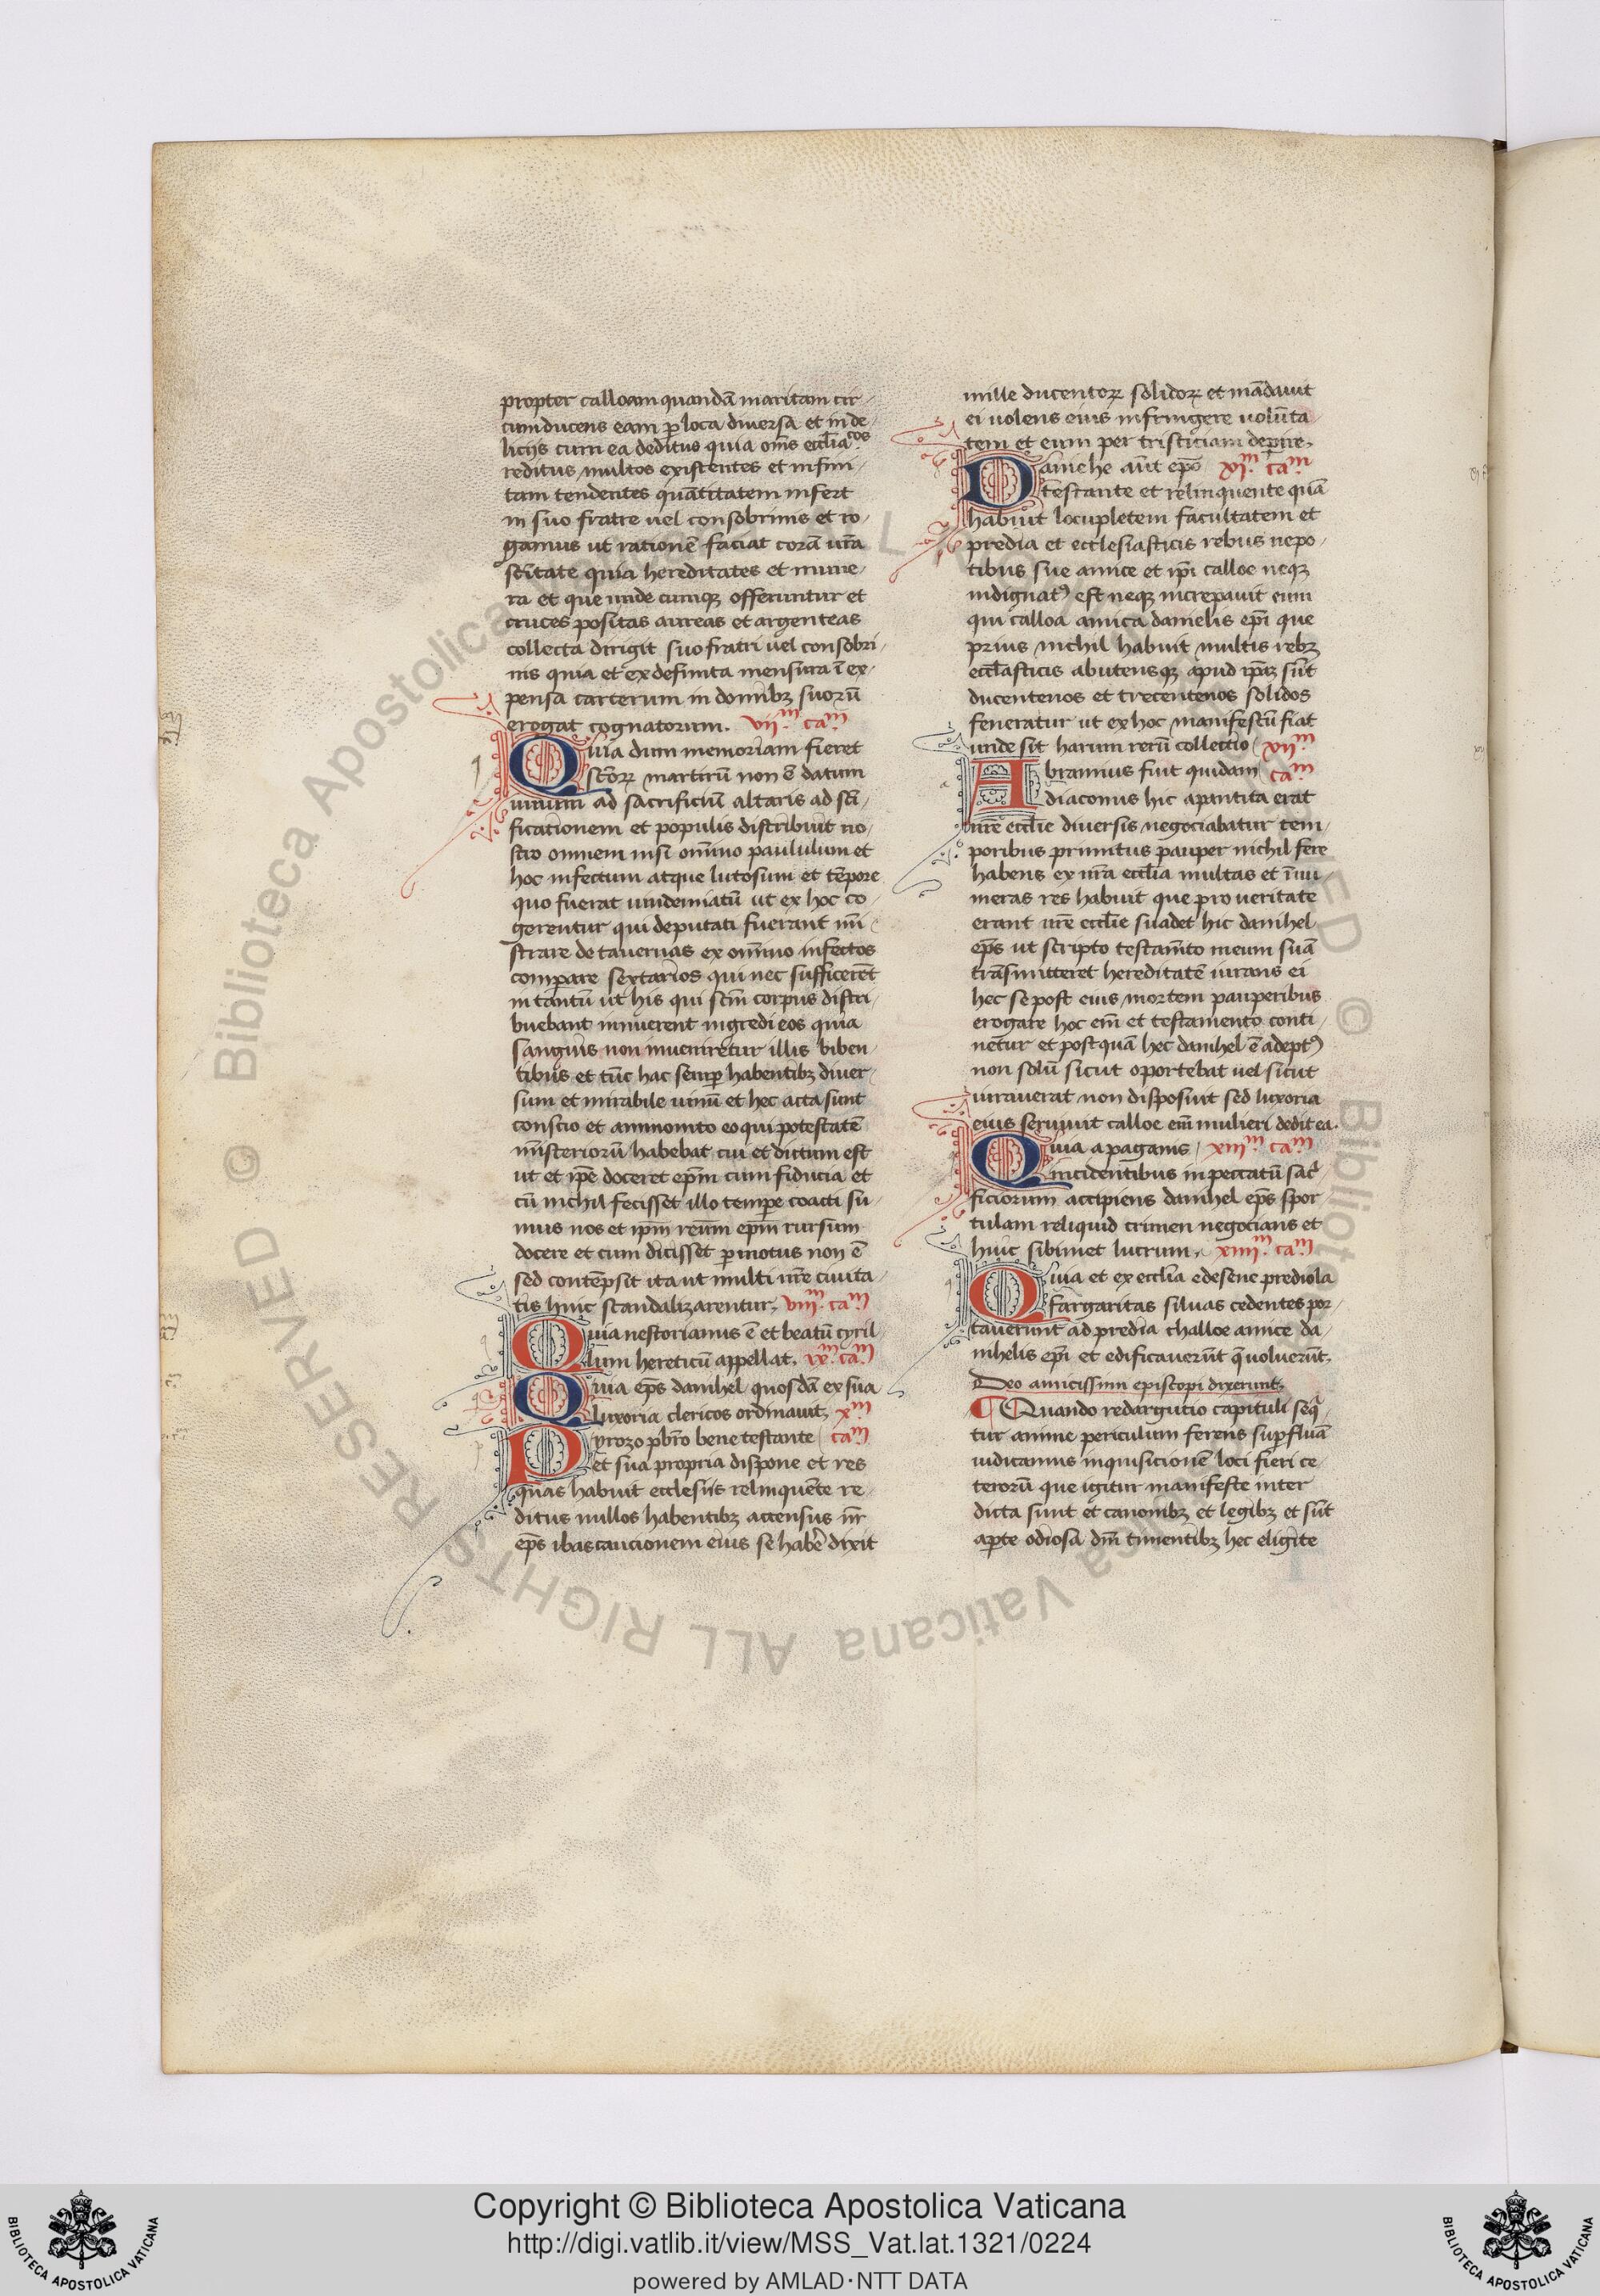 propter calloam quandā maritam cir
cumducens eam ꝑ loca diversa et in de
licijs cum ea deditus quia om̄s eccl̄iaᶜᵒˢ
reditus multos existentes et infini
tam tendentes quātitatem infert
in suo fratre uel consobrinis et ro
gamus ut rationē faciat corā ur̄a
sc̄itate quia hereditates et mune
ra et que unde cumqꝫ offeruntur et
cruces positas aureas et argenteas
collecta dirigit suo fratri uel consobri
nis quia et ex definita mensura ī ex
pensa carcerum in domibꝫ suorū
erogat cognatorum. vijᵐ. caᵐ
Quia dum memoriam fieret
sc̄orꝝ martirū non ē datum
uinum ad sacrificiū altaris ad sc̄i
ficationem et populis distribuit no
stro omnem nisi omīno paululum et
hoc infectum atque lutosum et tēpore
quo fuerat uindemiatū ut ex hoc co
gerentur qui deputati fuerant mī
strare de tavernas ex omīno infectos
comꝑare sextarios qui nec sufficerēt
in tantū ut his qui sc̄m corpus distri
buebant innuerent ingredi eos quia
sanguis non inueniretur illis biben
tibus et tūc hac semꝑ habentibꝫ diver
sum et mirabile uinū et hec acta sunt
conscio et ammonito eo qui potestatē
mīsteriorū habebat cui et dictum est
ut et ip̄e doceret ep̄m cum fiducia et
cū nichil fecisset illo tempe coacti su
mus nos et ip̄m reūm ep̄m rursum
docere et cum dicisset ꝑmotus non ē
sed contēpsit ita ut multi nr̄e civita
tis huic scandalizarentur. viijᵐ. caᵐ
Quia nestorianus ē et beatū cyril
lum hereticū appellat. ixᵐ. caᵐ
Quia ep̄s danihel quosdā ex sua
luxoria clericos ordinauit. xᵐ
Pyrozo pb̄ro bene testante caᵐ
et sua propria dispone et res
quas habuit ecclesiis relinquēte re
ditus nullos habentibꝫ accensus nr̄
ep̄s ibas caucionem eius se habē dixit
mille ducentorꝝ solidorꝝ et mādauit
ei uolens eius infringere uolūta
tem et eum per tristiciam deꝑire.
Daniehe aūt ep̄o xiᵐ. caᵐ
testante et relinquente quā
habuit locupletem facultatem et
predia et ecclesiasticis rebus nepo
tibus sue amice et ip̄i calloe neqꝫ
indignatꝰ est neqꝫ increpauit eum
qui calloa amica danielis ep̄i que
prius nichil habuit multis rebꝫ
eccl̄asticis abutensqꝫ apud ip̄aꝫ sūt
ducentenos et trecentenos solidos
feneratur ut ex hoc manifestū fiat
unde sit harum rerū collectio xijᵐ
Abramius fuit quidam caᵐ
diaconus hic apantita erat
nr̄e eccl̄ie diversis negociabatur tem
poribus primitus pauper nichil fere
habens ex nr̄a eccl̄ia multas et īnu
meras res habuit que pro ueritate
erant nr̄e eccl̄ie suadet hic danihel
ep̄s ut scripto testam̄to meum suā
trāsmitteret hereditatē iurans ei
hec se post eius mortem pauperibus
erogare hoc em̄ et testamento conti
netur et postquā hec danihel ē adeptꝰ
non solū sicut oportebat uel sicut
iurauerat non disposuit sed luxoria
eius seruiuit calloe em̄ mulieri dedit ea.
Quia a paganis xiijᵐ caᵐ
incidentibus in peccatū sacͥ
ficiorum accipiens danihel ep̄s spor
tulam reliquid crimen negocians et
huic sibimet lucrum. xiiijᵐ. caᵐ
Quia et ex eccl̄ia edesene prediola
fargaritas siluas cedentes por
tauerunt ad predia challoe amice da
nihelis ep̄i et edificauerūt q̄ uoluerūt.
Deo amicissimi episcopi dixerunt.
¶ Quando redargutio capituli seqͥ
tur anime periculum ferens suꝑfluā
iudicamus inquisicionē loci fieri ce
terorū que igitur manifeste inter
dicta sunt et canonibꝫ et legibꝫ et sūt
aꝑte odiosa dm̄ timentibꝫ hec eligite
Copyright © Biblioteca Apostolica Vaticana
http://digi.vatlib.it/view/MSS_Vat.lat.1321/0224
powered by AMLAD·NTT DATA
BIBLIOTECA APOSTOLICA VATICANA
BIBLIOTECA APOSTOLICA VATICANA